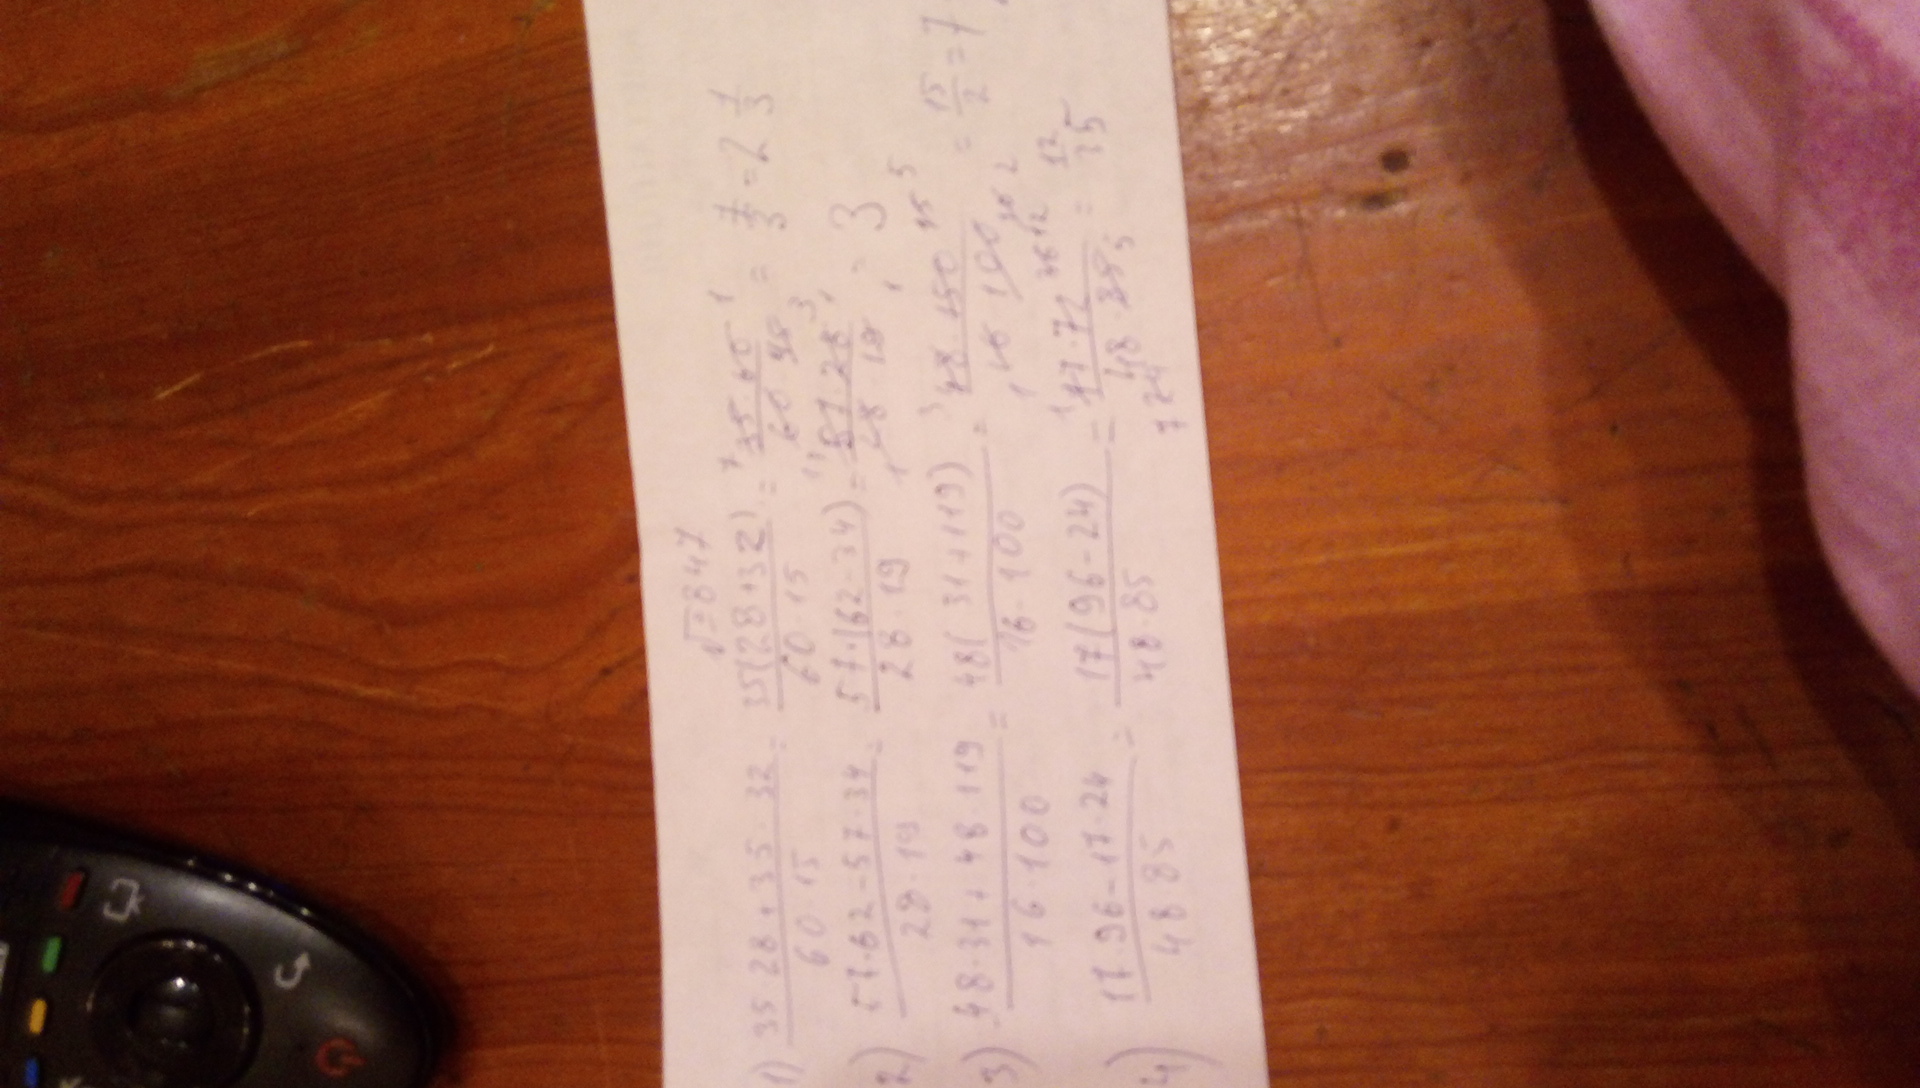 √=847
1) 35·28+35·32 / 60·15 = 35(28+32) / 60·15 = 35·60 / 60·15 = 7/3 = 2 1/3
2) 57·62-57·34 / 28·19 = 57·(62-34) / 28·19 = 57·28 / 28·19 = 3
3) 48·31+48·119 / 16·100 = 48(31+119) / 16·100 = 48·150 / 16·100 = 15/2 = 7
4) 17·96-17·24 / 48·85 = 17(96-24) / 48·85 = 17·72 / 48·85 =